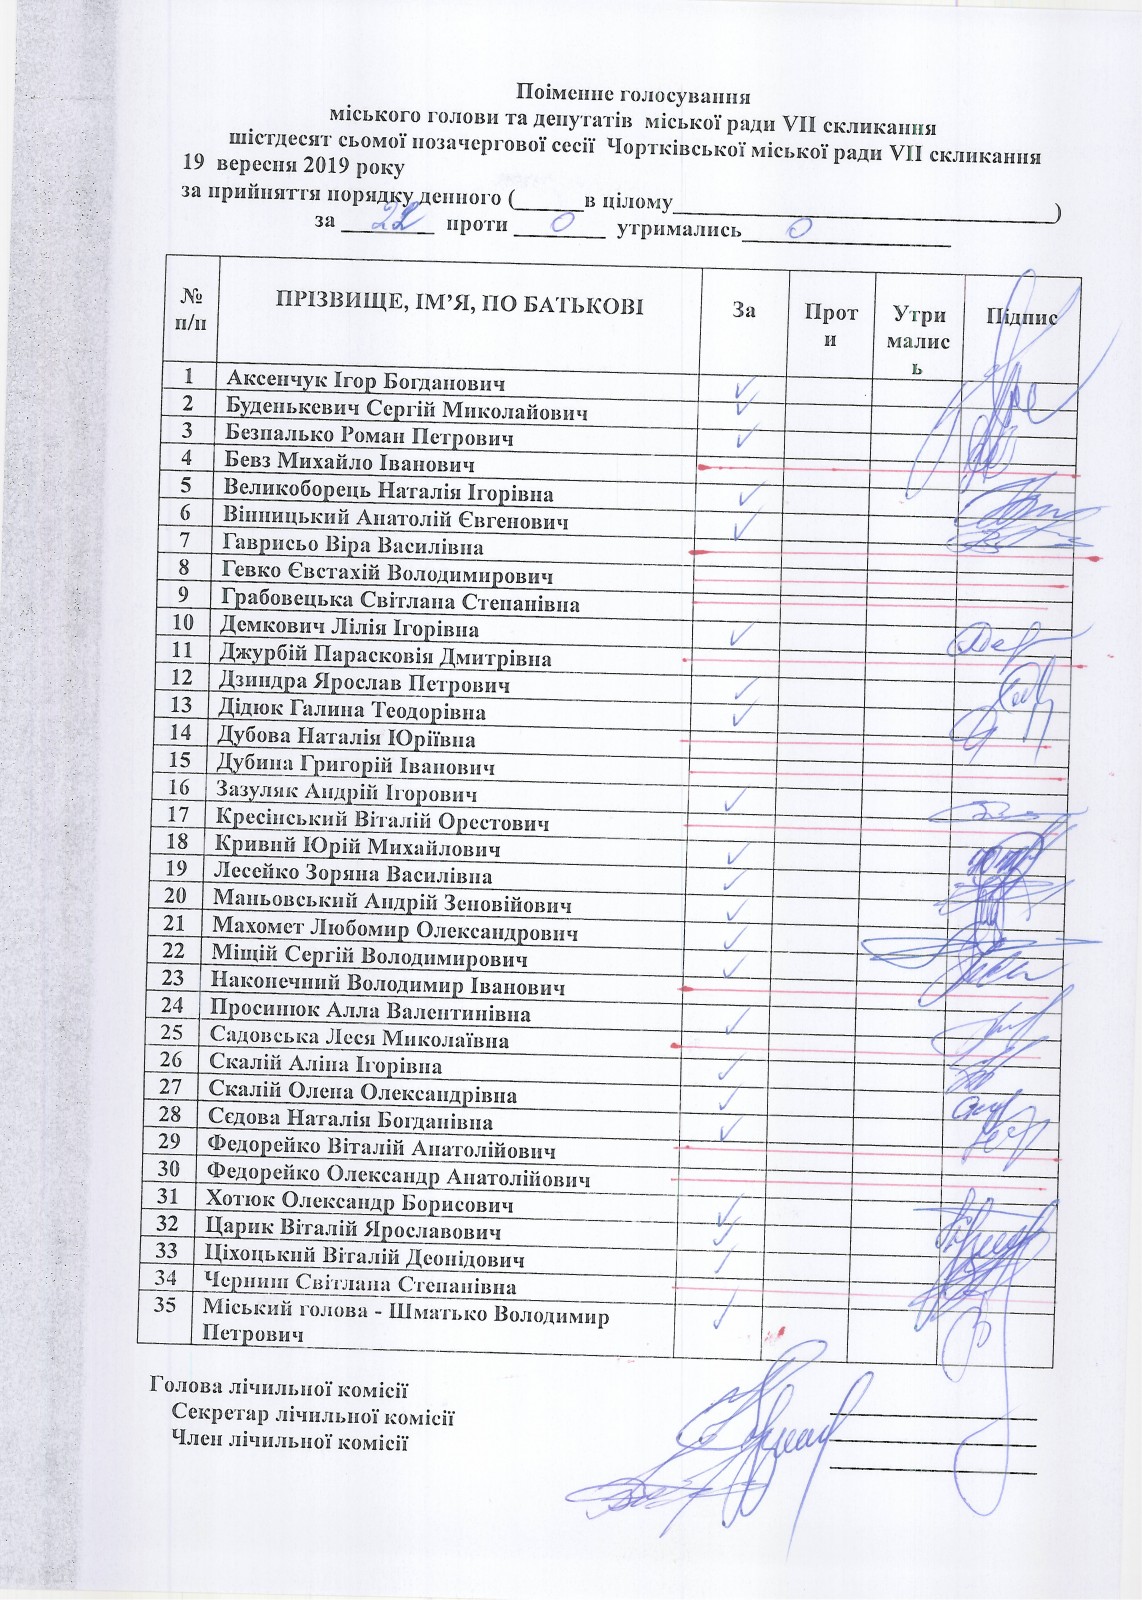 Поіменне голосування
міського голови та депутатів міської ради VII скликання
шістдесят сьомої позачергової сесії Чортківської міської ради VII скликання
19 вересня 2019 року
за прийняття порядку денного (______в цілому________________________________)
за 22 проти 0 утримались 0
№ п/п ПРІЗВИЩЕ, ІМ’Я, ПО БАТЬКОВІ За Проти Утрималиcь Підпис
1 Аксенчук Ігор Богданович ✓
2 Буденькевич Сергій Миколайович ✓
3 Безпалько Роман Петрович ✓
4 Бевз Михайло Іванович
5 Великоборець Наталія Ігорівна ✓
6 Вінницький Анатолій Євгенович ✓
7 Гаврисьо Віра Василівна
8 Гевко Євстахій Володимирович
9 Грабовецька Світлана Степанівна
10 Демкович Лілія Ігорівна ✓
11 Джурбій Парасковія Дмитрівна
12 Дзиндра Ярослав Петрович ✓
13 Дідюк Галина Теодорівна ✓
14 Дубова Наталія Юріївна
15 Дубина Григорій Іванович
16 Зазуляк Андрій Ігорович ✓
17 Кресінський Віталій Орестович
18 Кривий Юрій Михайлович ✓
19 Лесейко Зоряна Василівна ✓
20 Маньовський Андрій Зеновійович ✓
21 Махомет Любомир Олександрович ✓
22 Міщій Сергій Володимирович ✓
23 Наконечний Володимир Іванович
24 Просинюк Алла Валентинівна ✓
25 Садовська Леся Миколаївна
26 Скалій Аліна Ігорівна ✓
27 Скалій Олена Олександрівна ✓
28 Сєдова Наталія Богданівна ✓
29 Федорейко Віталій Анатолійович
30 Федорейко Олександр Анатолійович
31 Хотюк Олександр Борисович ✓
32 Царик Віталій Ярославович ✓
33 Ціхоцький Віталій Деонідович ✓
34 Черниш Світлана Степанівна
35 Міський голова - Шматько Володимир ✓
Петрович
Голова лічильної комісії
Секретар лічильної комісії
Член лічильної комісії